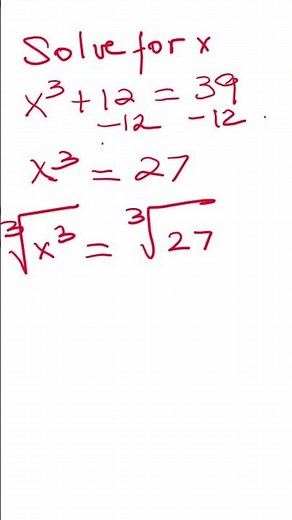 Solve for x
x³ + 12 = 39
-12 -12
x³ = 27
∛x³ = ∛27